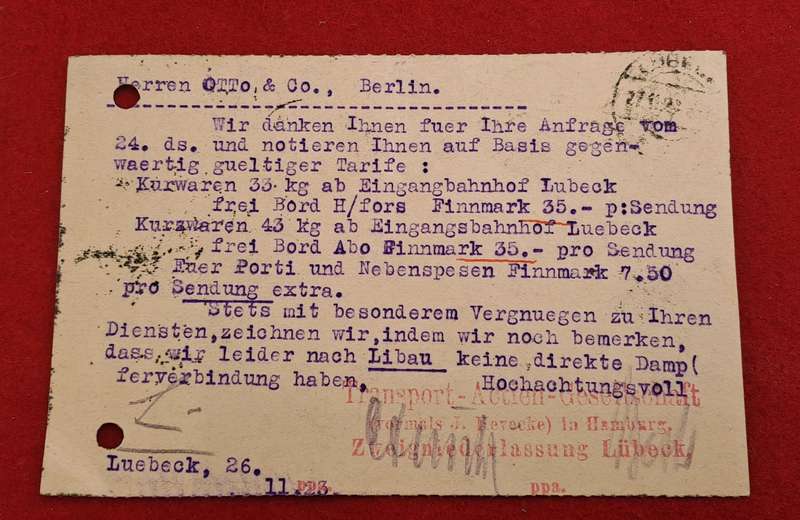 Herren OTTo & Co., Berlin.
Wir danken Ihnen fuer Ihre Anfrage vom
24. ds. und notieren Ihnen auf Basis gegen-
waertig gueltiger Tarife :
Kurwaren 33 kg ab Eingangbahnhof Lubeck
frei Bord H/fors Finnmark 35.- p:Sendung
Kurzwaren 43 kg ab Eingangsbahnhof Luebeck
frei Bord Abo Finnmark 35.- pro Sendung
Fuer Porti und Nebenspesen Finnmark 7.50
pro Sendung extra.
Stets mit besonderem Vergnuegen zu Ihren
Diensten,zeichnen wir,indem wir noch bemerken,
dass wir leider nach Libau keine direkte Damp(
ferverbindung haben. Hochachtungsvoll
Transport-Actien-Gesellschaft
(vormals J. Hevecke) in Hamburg.
Zweigniederlassung Lübeck.
Luebeck, 26.
11.23.
ppa. ppa.